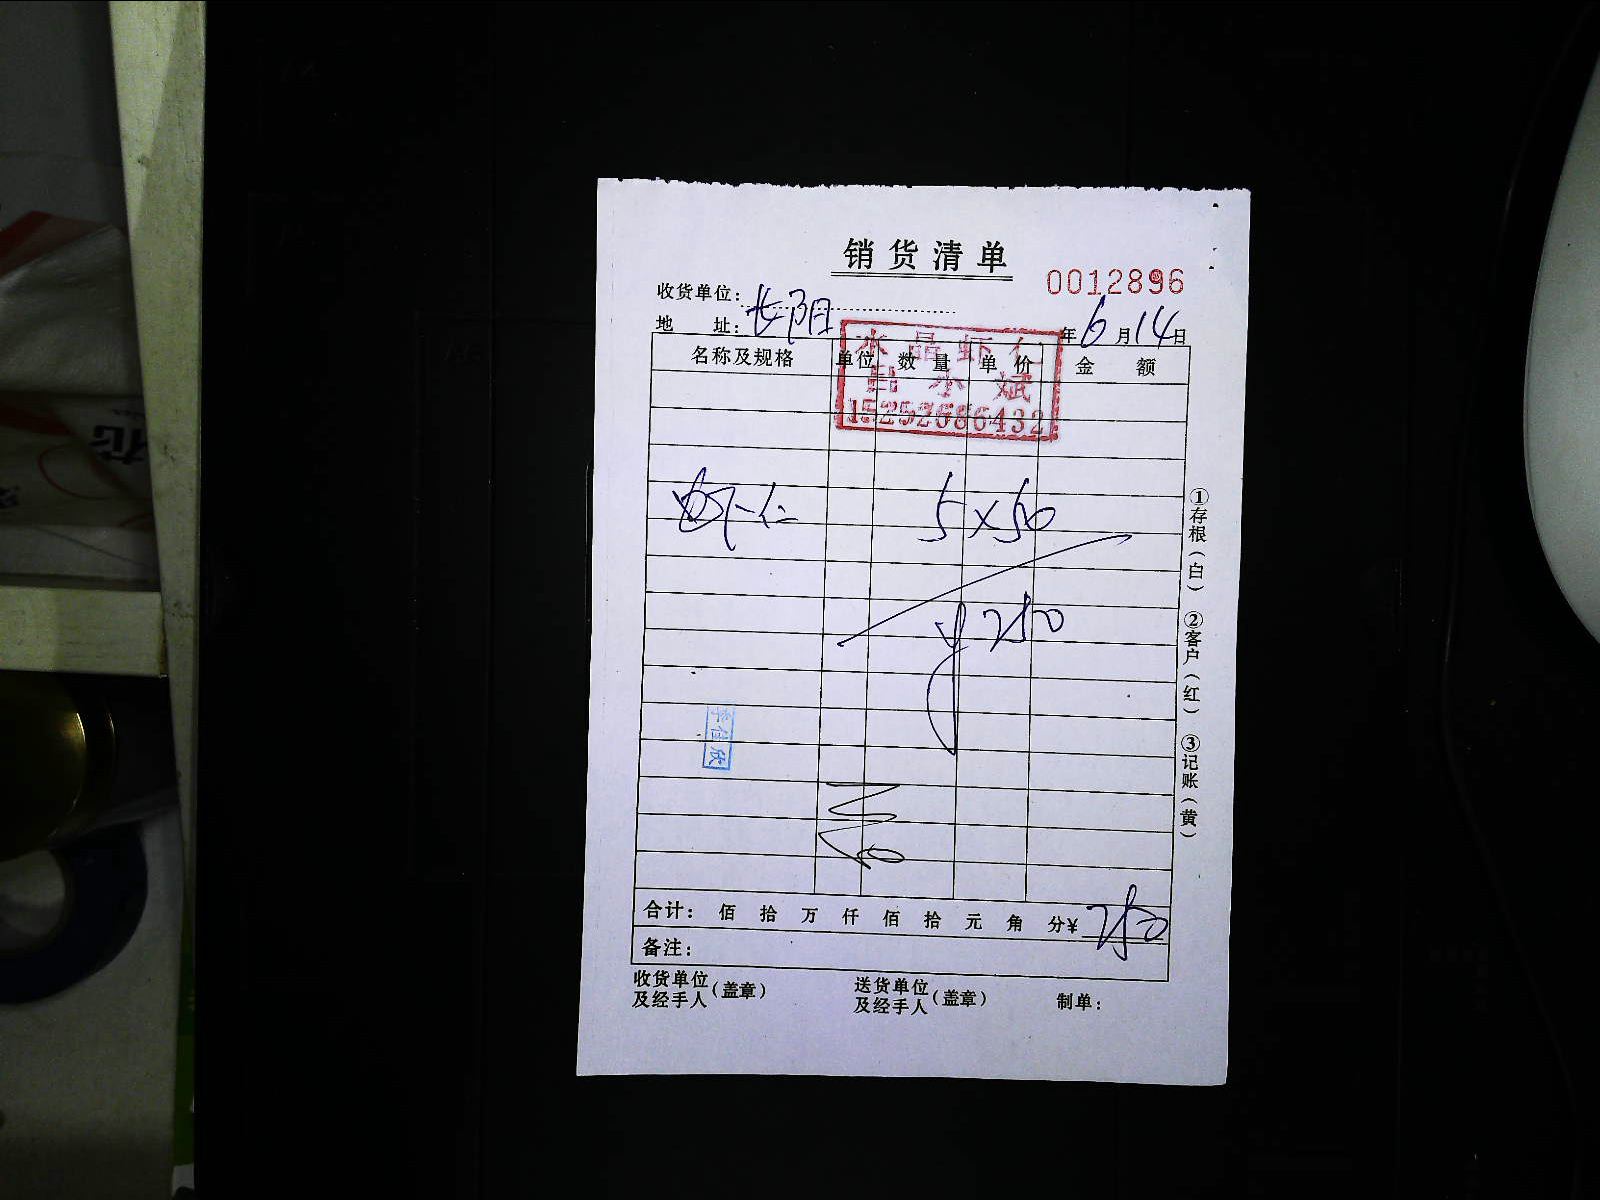 销货清单
0012896
收货单位：
地 址：长阳
年6月14日
水晶虾仁
吕小斌
15252686432
名称及规格 单位 数量 单价 金额
虾仁 5×50
¥250
李佳欣
合计： 佰 拾 万 仟 佰 拾 元 角 分¥ 250
备注：
收货单位及经手人（盖章） 送货单位及经手人（盖章） 制单：
①存根（白） ②客户（红） ③记账（黄）